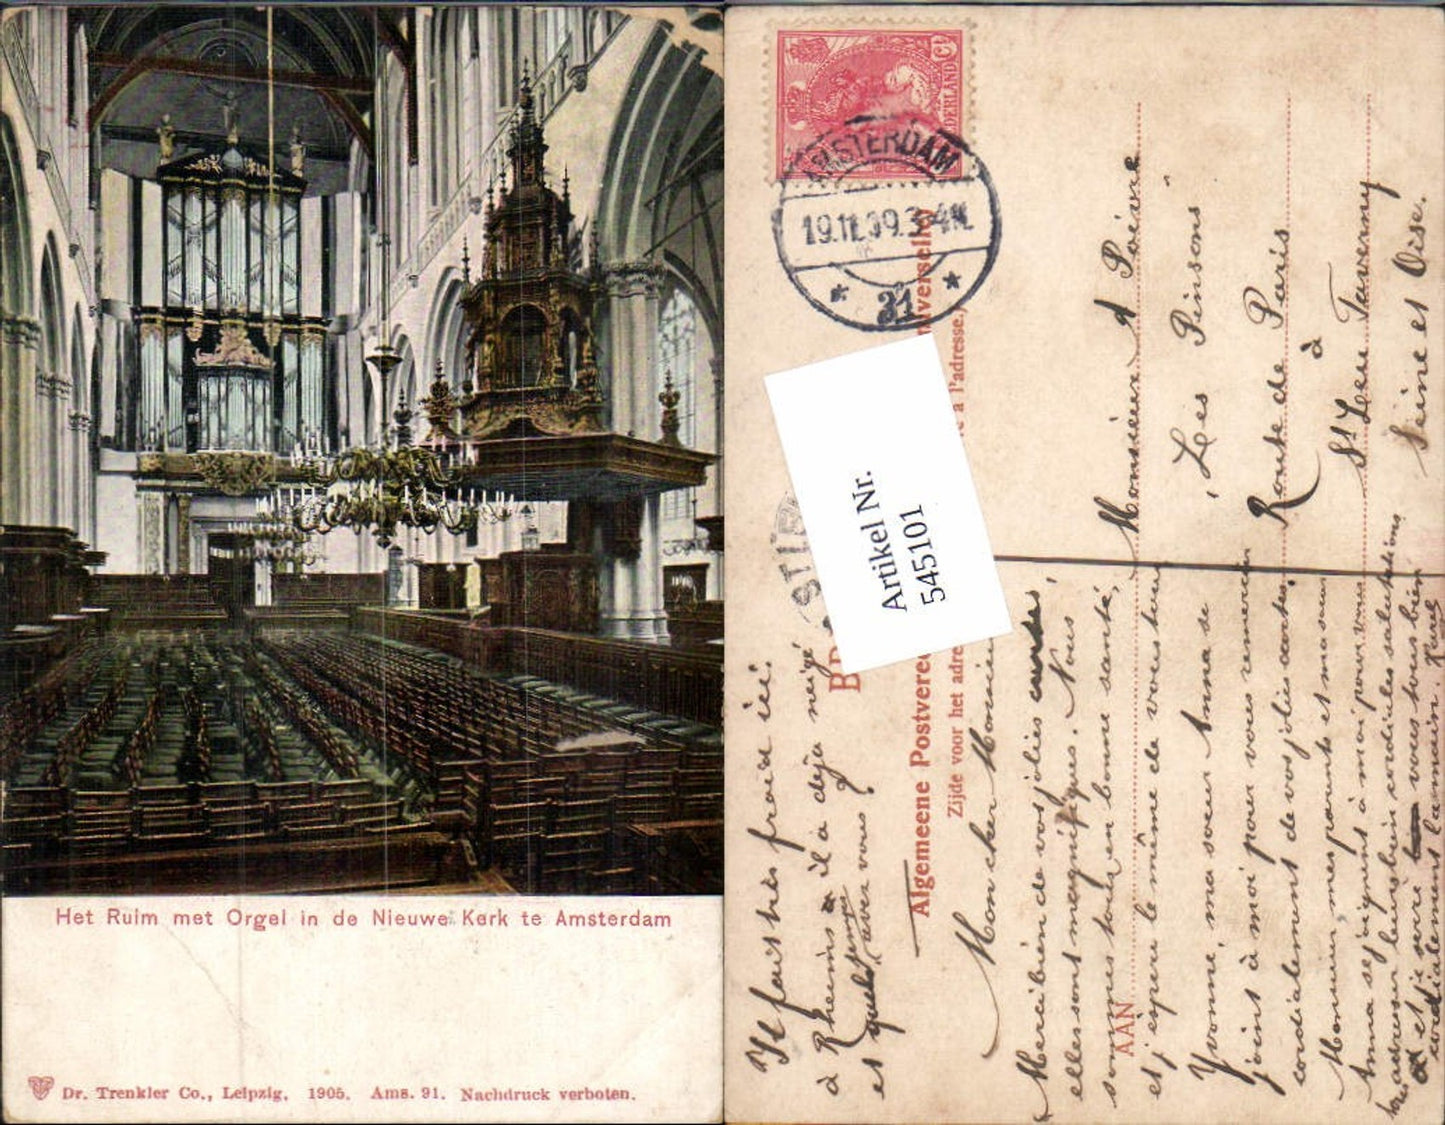 Het Ruim met Orgel in de Nieuwe Kerk te Amsterdam
Dr. Trenkler Co., Leipzig. 1905. Ams. 91. Nachdruck verboten.
NEDERLAND
Ct
AMSTERDAM
19.11.09.3-4N.
* 21 *
Artikel Nr.
545101
Algemeene Postvere
Zijde voor het adre
à l'adresse.)
AAN
Monsieur A Poivre
Les Pinsons
Route de Paris
à
St Leu Taverny
Seine et Oise.
Il fait très froid ici.
à Rheims il a déja neigé
et quel temps avez vous?
Mon cher Monsieur
Merci bien de vos jolies cartes,
elles sont magnifiques. Nous
sommes tous en bonne santé,
et j'espère le même de vous tous
Yvonne, ma soeur Anna se
joint à moi pour vous remercier
cordialement de vos jolies cartes,
Maman, mes parents et ma soeur
Anna se joignent à moi pour vous
adresser leurs bien cordiales salutations
et je serre vous tous bien
cordialement la main.